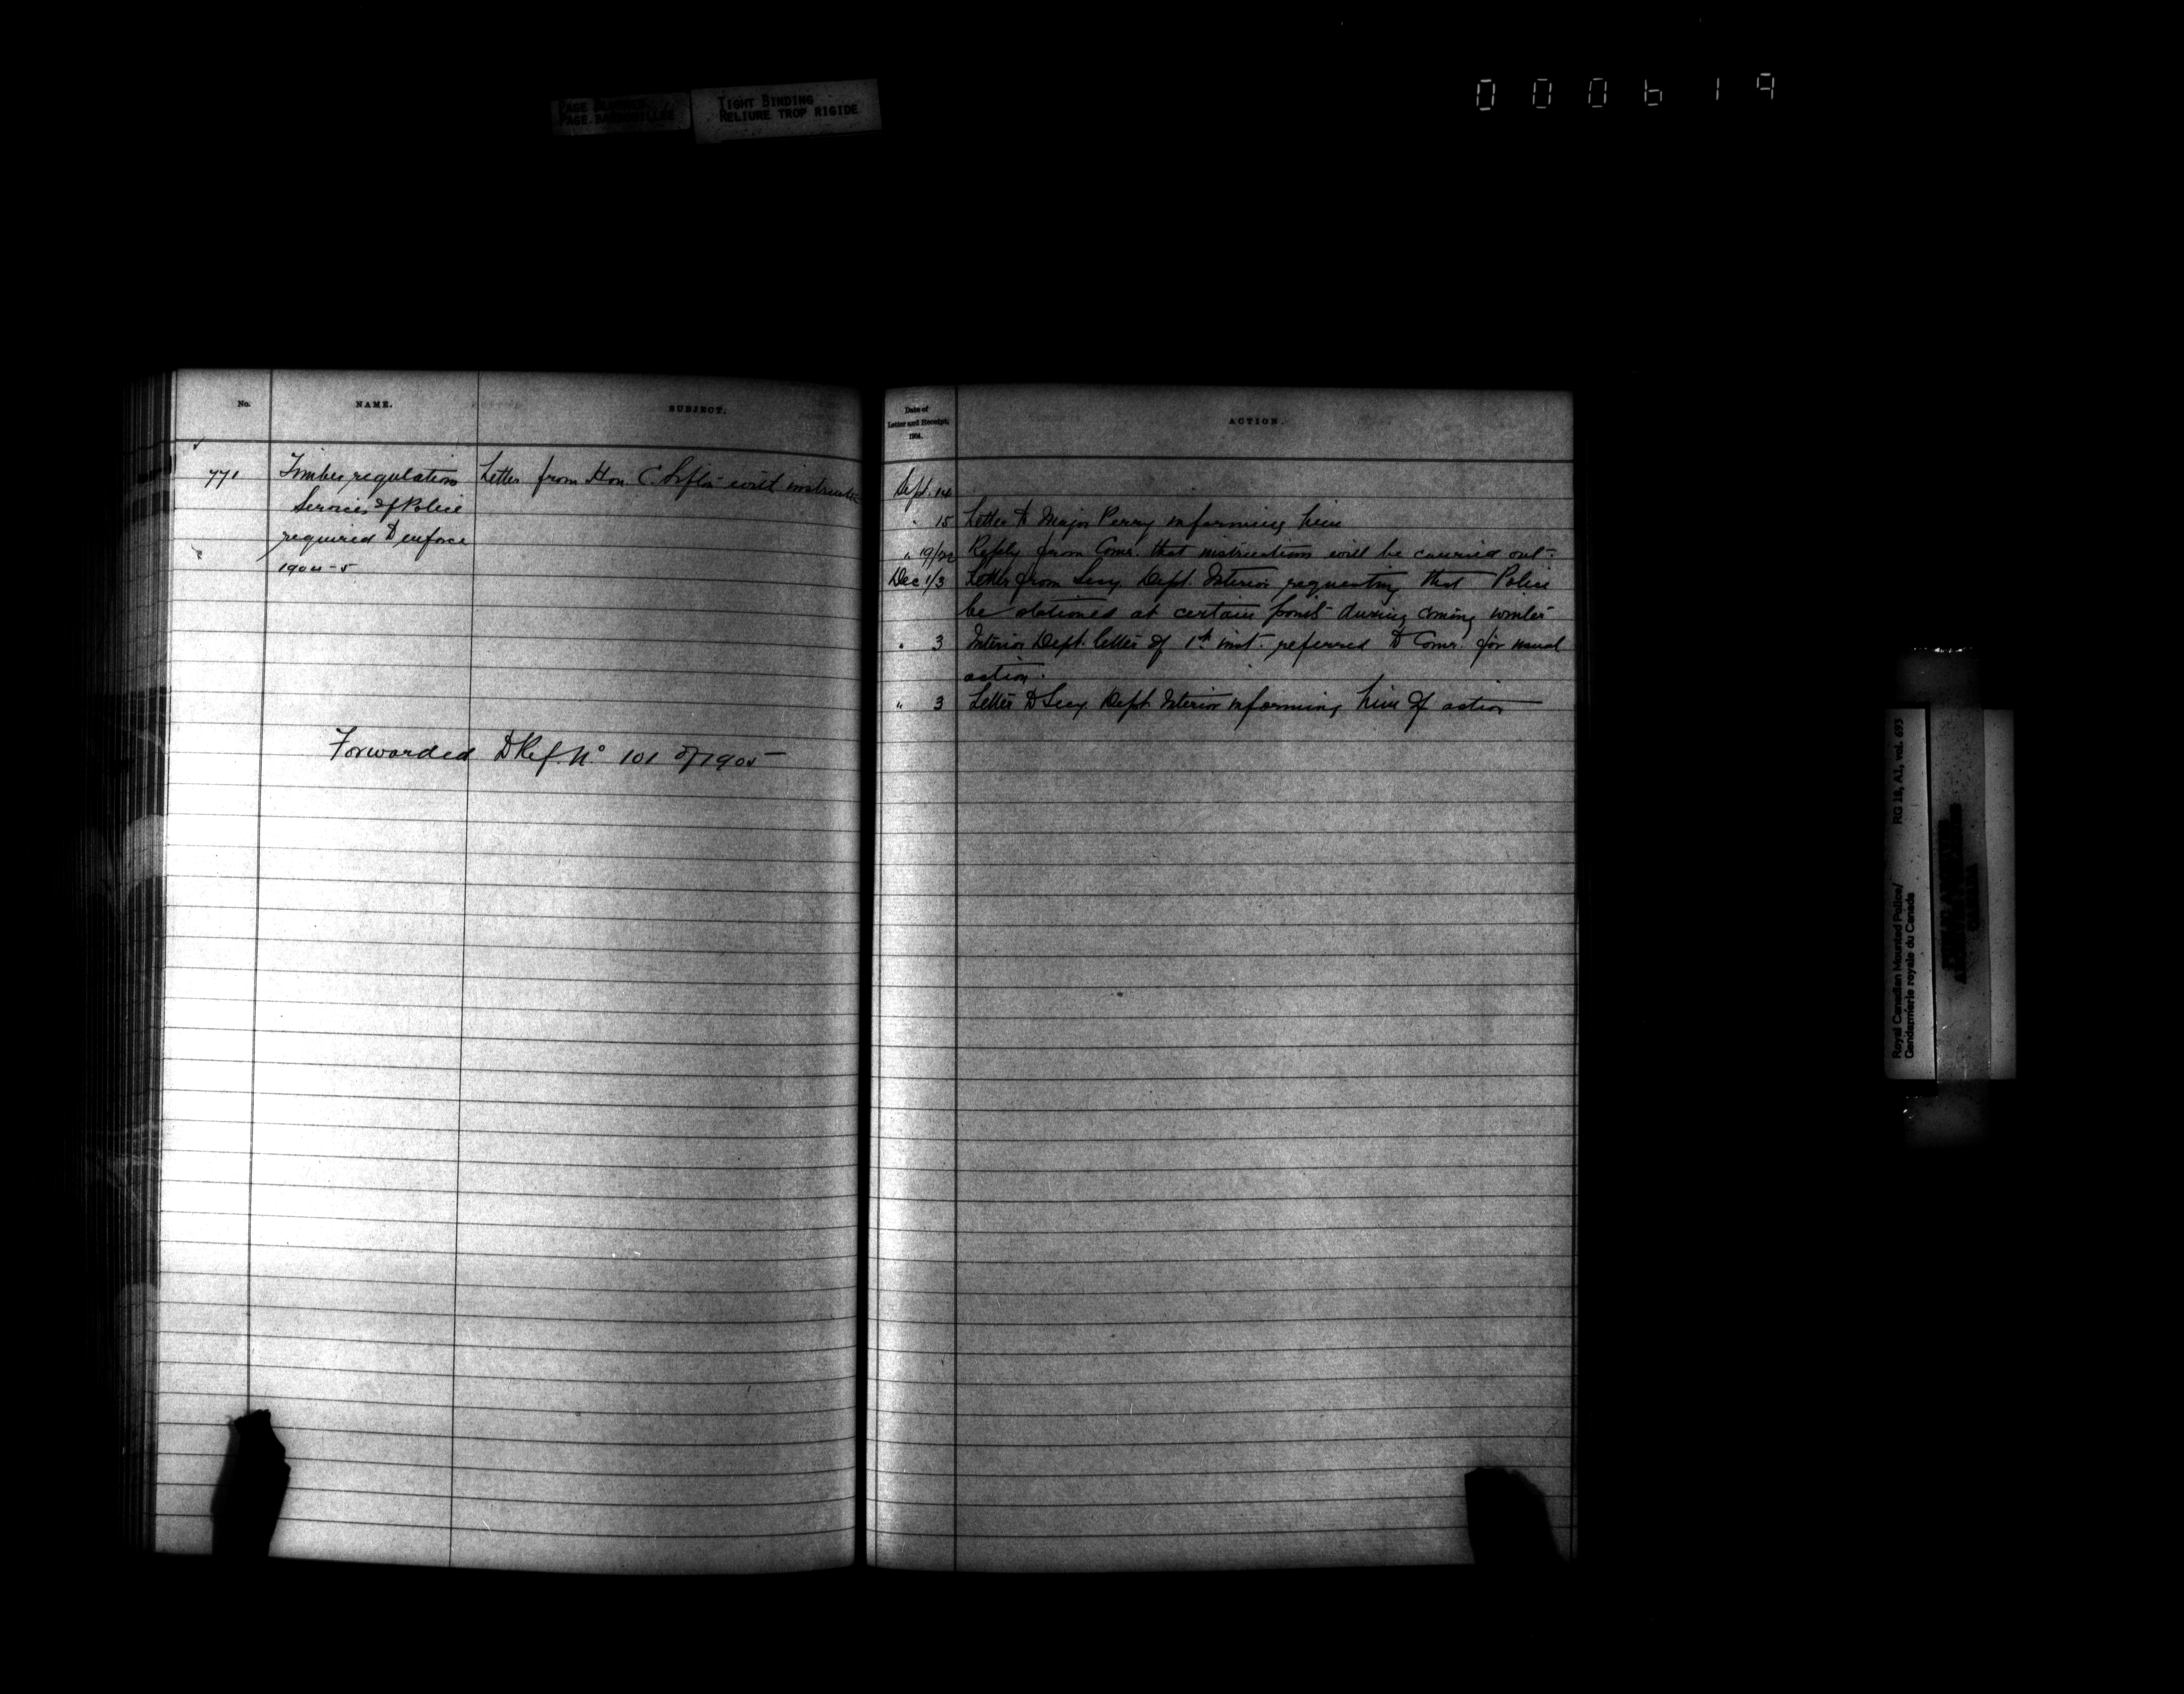 TIGHT BINDING
RELIURE TROP RIGIDE
000619
No.
NAME.
SUBJECT.
771
Timber regulations
Services of Police
required to enforce
1904-5
Letter from Hon. C. Sifton with instruction
Forwarded to Ref. No 101 of 1905
Date of
Letter and Receipt,
1904.
ACTION.
Sept. 14
" 15 Letter to Major Perry informing him
" 19/22 Reply from Comr. that instructions will be carried out.
Dec 1/3 Letter from Secy. Dept. Interior requesting that Police
be stationed at certain points during coming winter
" 3 Interior Dept. letter of 1st inst. referred to Comr. for usual
action.
" 3 Letter to Secy. Dept. Interior informing him of action
Royal Canadian Mounted Police/
Gendarmerie royale du Canada
RG 18, A1, vol. 693